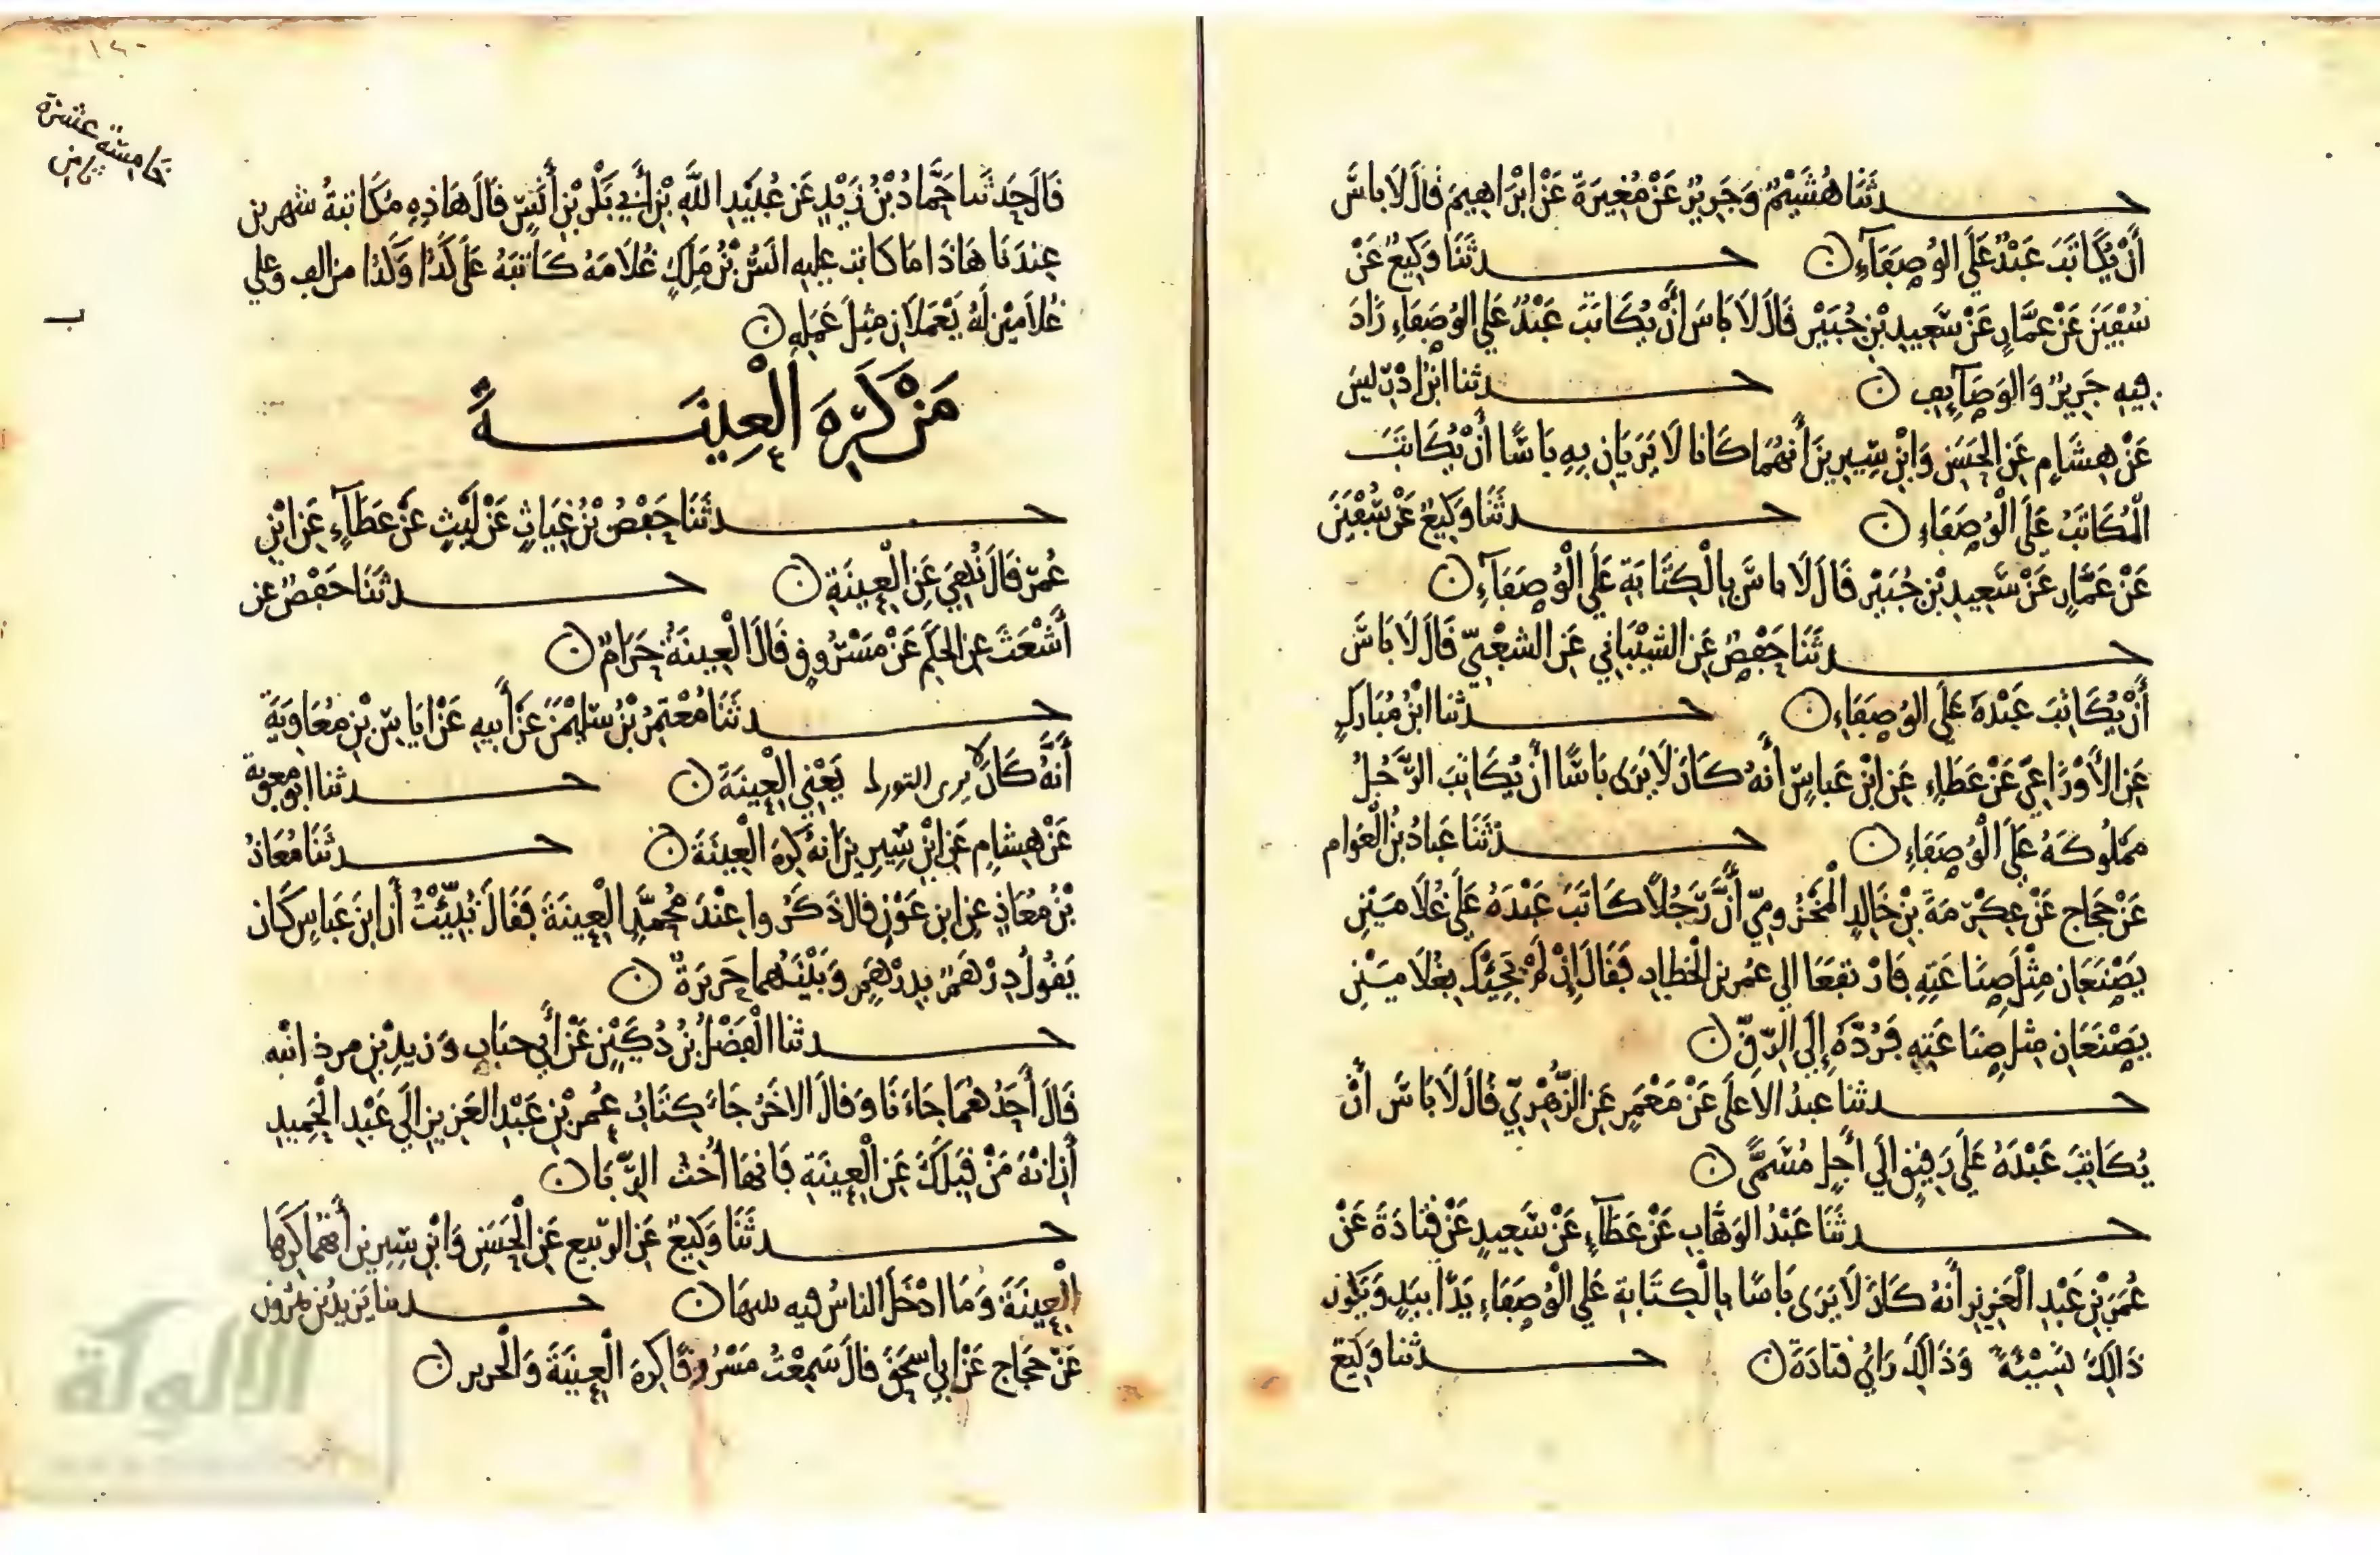 حدثنا هُشَيْمٌ وَجَرِيرٌ عَنْ مُغِيرَةَ عَنْ ابْرَاهِيمَ قَالَ لَا بَاسَ
أَنْ يُكَاتَبَ عَبْدٌ عَلَى الوُصَفَآءِ ن حدثَنَا وَكِيعٌ عَنْ
سُفْيَنَ عَنْ عَمَّارٍ عَنْ سَعِيدِ بْنِ جُبَيْرٍ قَالَ لَا بَاسَ أَنْ يُكَاتَبَ عَبْدٌ عَلَى الوُصَفَاءِ زَادَ
فِيهِ جَرِيرٌ وَالوَصَآئِفِ ن حدثنا ابْنُ ادْرِيسَ
عَنْ هِشَامٍ عَنِ الحَسَنِ وَابْنِ سِيرِينَ أَنَّهُمَا كَانَا لَا يَرَيَانِ بِهِ بَاسًا أَنْ يُكَاتَبَ
الْمُكَاتَبُ عَلَى الْوُصَفَاءِ ن حدثَنَا وَكِيعٌ عَنْ سُفْيَنَ
عَنْ عَمَّارٍ عَنْ سَعِيدِ بْنِ جُبَيْرٍ قَالَ لَا بَاسَ بِالْكِتَابَةِ عَلَى الْوُصَفَآءِ ن
حدثَنَا حَفْصٌ عَنِ الشَّيْبَانِي عَنِ الشَّعْبِيِّ قَالَ لَا بَاسَ
أَنْ يُكَاتِبَ عَبْدَهُ عَلَى الوُصَفَاءِ ن حدثنا ابْنُ مُبَارَكٍ
عَنِ الأَوْزَاعِيِّ عَنْ عَطَاءٍ عَنِ ابْنِ عَبَّاسٍ أَنَّهُ كَانَ لَا يَرَى بَاسًا أَنْ يُكَاتِبَ الرَّجُلُ
مَمْلُوكَهُ عَلَى الْوُصَفَاءِ ن حدثَنَا عَبَّادُ بْنُ الْعَوَّامِ
عَنْ حَجَّاجٍ عَنْ عِكْرِمَةَ بْنِ خَالِدٍ الْمَخْزُومِيِّ أَنَّ رَجُلًا كَاتَبَ عَبْدَهُ عَلَى غُلَامَيْنِ
يَصْنَعَانِ مِثْلَ صِنَاعَتِهِ فَارْتَفَعَا الى عُمَر بن الخَطَّابِ فَقَالَ إِنْ لَمْ يَجِئْكَ بِغُلَامَيْنِ
يَصْنَعَانِ مِثْلَ صِنَاعَتِهِ فَرُدَّهُ إِلَى الرِّقِّ ن
حدثنا عبدُ الاعلَى عَنْ مَعْمَرٍ عَنِ الزُّهْرِيِّ قَالَ لَا بَاسَ أَنْ
يُكَاتِبَ عَبْدَهُ عَلَى رَقِيقٍ الَى أَجَلٍ مُسَمًّى ن
حدثَنَا عَبْدُ الوَهَّابِ عَنْ عَطَآءٍ عَنْ سَعِيدٍ عَنْ قَتَادَةَ عَنْ
عُمَرَ بْنِ عَبْدِ الْعَزِيزِ أَنَّهُ كَانَ لَا يَرَى بَاسًا بِالْكِتَابَةِ عَلَى الْوُصَفَاءِ يَدًا بِيَدٍ وَيَكُون
ذَالِكَ نَسِيْئَةً وَذَالِكَ رَايُ قتَادَةَ ن حدثنا وَكِيع
١٢٠
خامسة عشرة
قَالَ حَدثَنا حَمَّادُ بْنُ زَيْدٍ عَن عُبَيْدِ اللَّهِ بْنِ أَبِي بَكْرِ بْنِ أَنَسٍ قَالَ هَاذِهِ مُكَاتَبَةُ سِيرِين
عِنْدَنَا هَاذَا مَا كاتب عليه انَسُ بْنُ مَلِكٍ غُلَامَهُ كَاتَبَهُ عَلَى كَذَا وَكَذَا من الف وعلى
غُلَامَيْنِ لَهُ يَعْمَلَانِ مِثلَ عَمَلِهِ ن
مَنْ كَرِهَ الْعِينَةَ
حدثَنَا حَفْصُ بْنُ غِيَاثٍ عَنْ لَيْثٍ عَنْ عَطَآءٍ عَنِ ابْنِ
عُمَرَ قَالَ نُهِيَ عَنِ الْعِينَةِ ن حدثَنَا حَفْصٌ عن
أَشْعَثَ عن الحَكَمِ عَنْ مَسْرُوقٍ قَالَ الْعِينَةُ حَرَامٌ ن
حدثَنَا مُعْتَمِرُ بْنُ سُلَيْمَنَ عَنْ أَبِيهِ عَنْ ايَاسِ بْنِ مُعَاوِيَةَ
أَنَّهُ كَانَ لا يرى التورك يَعْنِي الْعِينَةَ ن حدثنا ابُو معوية
عَنْ هِشَامٍ عَنِ ابْنِ سِيرِينَ انَهُ كَرِهَ الْعِينَةَ ن حدثَنَا مُعَاذُ
بْنُ مُعَاذٍ عن ابن عَوْنٍ قال ذَكَرُوا عِنْدَ مُحَمَّدٍ الْعِينَةَ فَقَالَ نُبِّئْتُ أَن ابنَ عَبَّاسٍ كَان
يَقُولُ دِرْهَمٌ بِدِرْهَمٍ وَبَيْنَهُمَا حَرِيرَةٌ ن
حدثنا الْفَضْلُ بْنُ دُكَيْنٍ عَنْ أَبِي جنَابٍ وَزيدِ بْنِ مردانبه
قَالَ أَحَدُهُمَا جَاءَنَا وَقالَ الاخَرُ جَاءَ كِتَابُ عُمَر بْنِ عَبْدِ الْعَزِيزِ الَى عَبْدِ الْحَمِيدِ
أَنِ انْهَ مَنْ قِبَلَكَ عَنِ الْعِينَةِ فَانهَا أُخْتُ الرِّبَا ن
حدثَنَا وَكِيعٌ عَنِ الرَّبِيع عَنِ الْحَسَنِ وَابْنِ سِيرِين أَنَّهُمَا كَرِهَا
الْعِينَةَ وَمَا ادْخَلَ الناسُ فيه بينهَا ن حدثنا يَزِيدُ بْنُ هَرُون
عَنْ حَجَّاجٍ عَنْ ابِي اسحَقَ قالَ سَمِعْتُ مَسْرُوقًا كَرِهَ الْعِينَةَ وَالْحَرير ن
الألوكة